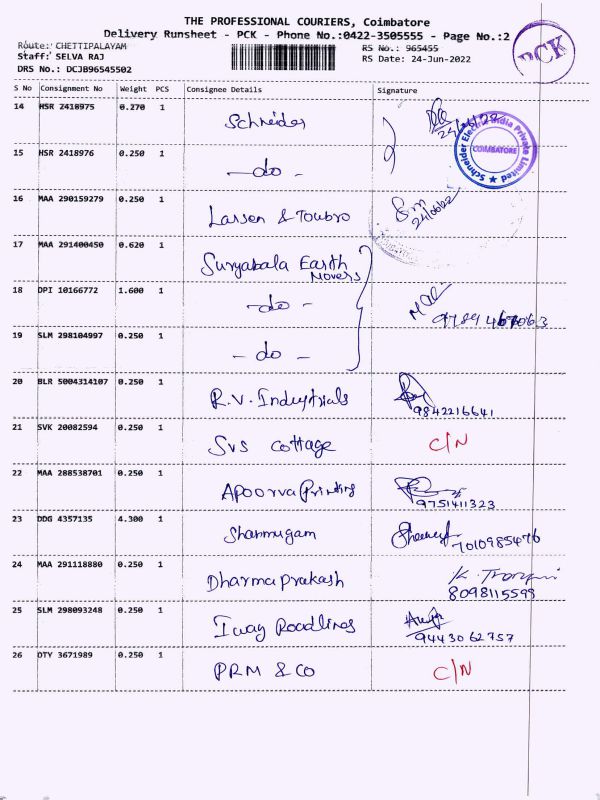 THE PROFESSIONAL COURIERS, Coimbatore
Delivery Runsheet - PCK - Phone No.:0422-3505555 - Page No.:2
Route: CHETTIPALAYAM
Staff: SELVA RAJ
DRS No.: DCJB96545502
RS No.: 965455
RS Date: 24-Jun-2022
PCK
S No Consignment No Weight PCS Consignee Details Signature
14 HSR 2418975 0.270 1 Schneider
24/6/22
Schneider Electric India Private Limited
COIMBATORE
15 HSR 2418976 0.250 1 - do -
16 MAA 290159279 0.250 1 Larsen & Toubro
17 MAA 291400450 0.620 1 Suryabala Earth Movers
18 DPI 10166772 1.600 1 - do -
19 SLM 298104997 0.250 1 - do -
20 BLR 5004314107 0.250 1 R.V. Industrials 9842216641
21 SVK 20082594 0.250 1 SVS cottage C/N
22 MAA 288538701 0.250 1 Apoorva Printing 9751411323
23 DDG 4357135 4.300 1 Shanmugam 7010985476
24 MAA 291118880 0.250 1 Dharma Prakash 8098115599
25 SLM 298093248 0.250 1 Iway Roadlines 9443062757
26 OTY 3671989 0.250 1 PRM & CO C/N